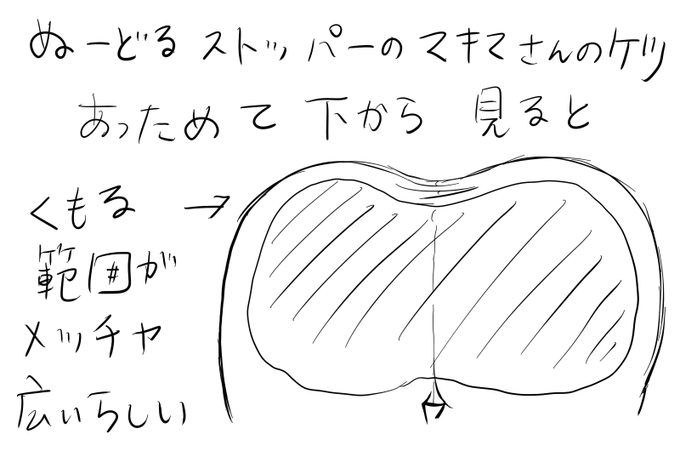 ぬーどるストッパーのマキマさんのケツ
あっためて下から見ると
くもる→
範囲が
メッチャ
広いらしい